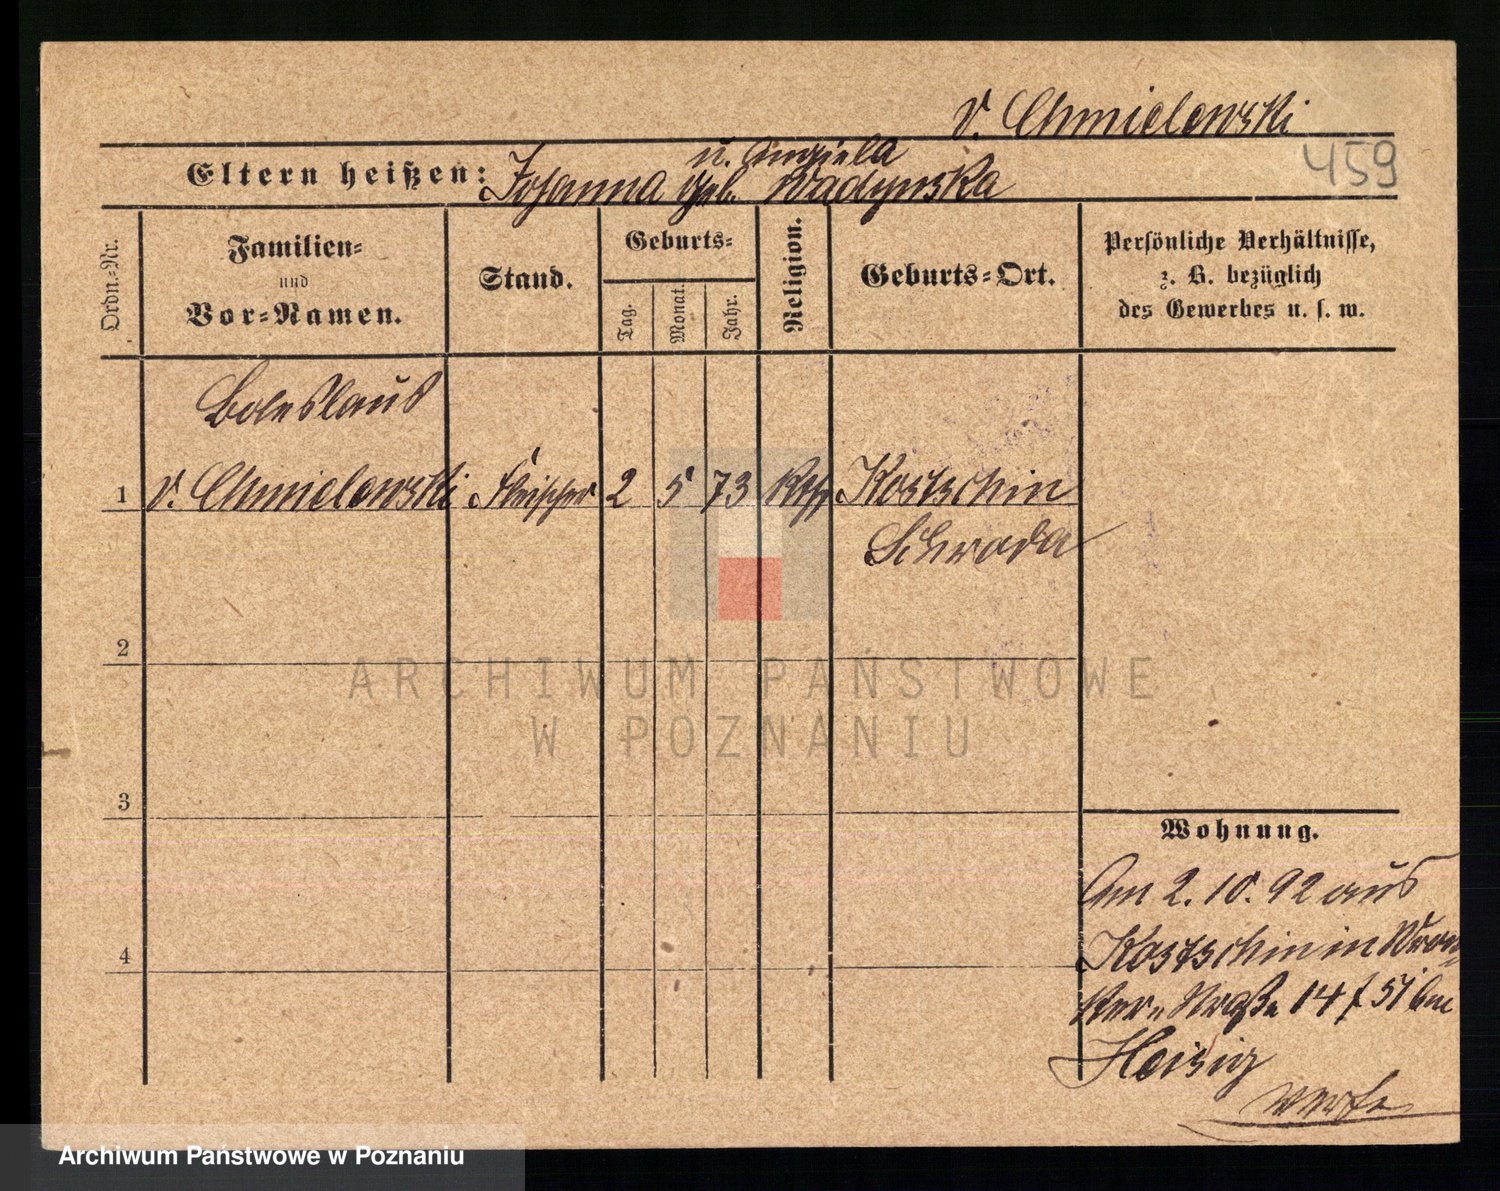 v. Chmielewski
459
u. Angiela
Eltern heißen: Johanna geb. Wadynska
Ordn.-Nr.
Familien-
und
Vor-Namen.
Stand.
Geburts-
Tag.
Monat.
Jahr.
Religion.
Geburts-Ort.
Persönliche Verhältnisse,
z. B. bezüglich
des Gewerbes u. s. w.
Boleslaus
1 v. Chmielewski Fleischer 2 5 73 Kth Kostschin
Schroda
2
3
4
Wohnung.
Am 2. 10. 92 aus
Kostschin in Wron-
ker-Straße 14 f 51 bei
Heisig
ARCHIWUM PAŃSTWOWE
W POZNANIU
Archiwum Państwowe w Poznaniu